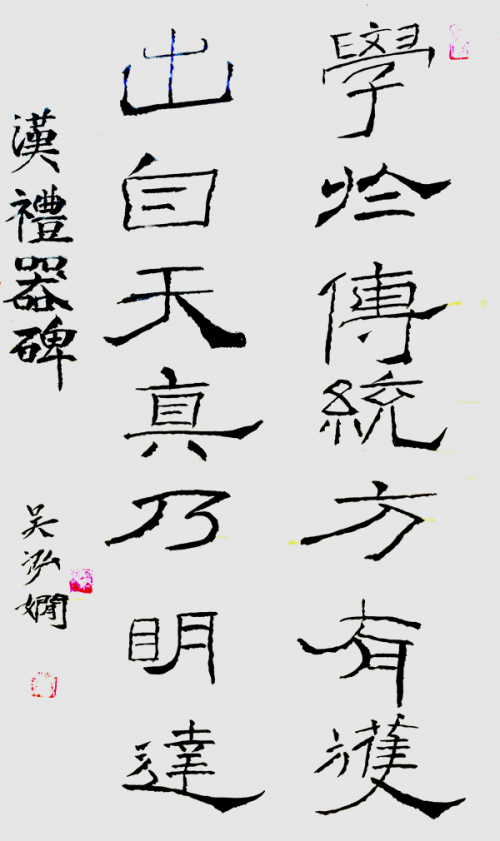 學於傳統方有獲
出自天真乃明達
漢禮器碑
吴泓嫺